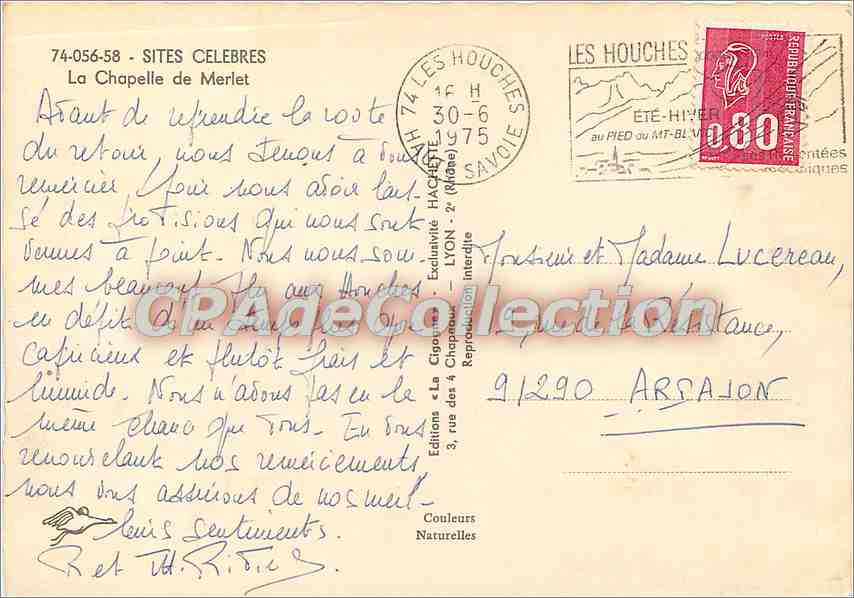 74-056-58 - SITES CELEBRES
La Chapelle de Merlet
Avant de reprendre la route
du retour, nous tenons à vous
remercier, pour nous avoir lais-
sé des provisions qui nous sont
venues à point. Nous nous som-
mes beaucoup plu aux Houches
en dépit d'un temps
capricieux et plutôt frais et
humide. Nous n'avons pas eu la
même chance que vous. En vous
renouvelant nos remerciements
nous vous assurons de nos meil-
leurs sentiments.
R et Th.
74 LES HOUCHES
16 H
30-6
1975
HAUTE SAVOIE
LES HOUCHES
ÉTÉ-HIVER
au PIED du MT-BLANC
REPUBLIQUE FRANÇAISE
POSTES
0,80
Monsieur et Madame LUCEREAU,
rue de la Résistance,
91290 ARPAJON
Editions «La Cigogne» - Exclusivité HACHETTE
3, rue des 4 Chapeaux — LYON - 2e (Rhône)
Reproduction interdite
Couleurs
Naturelles
CPAdeCollection